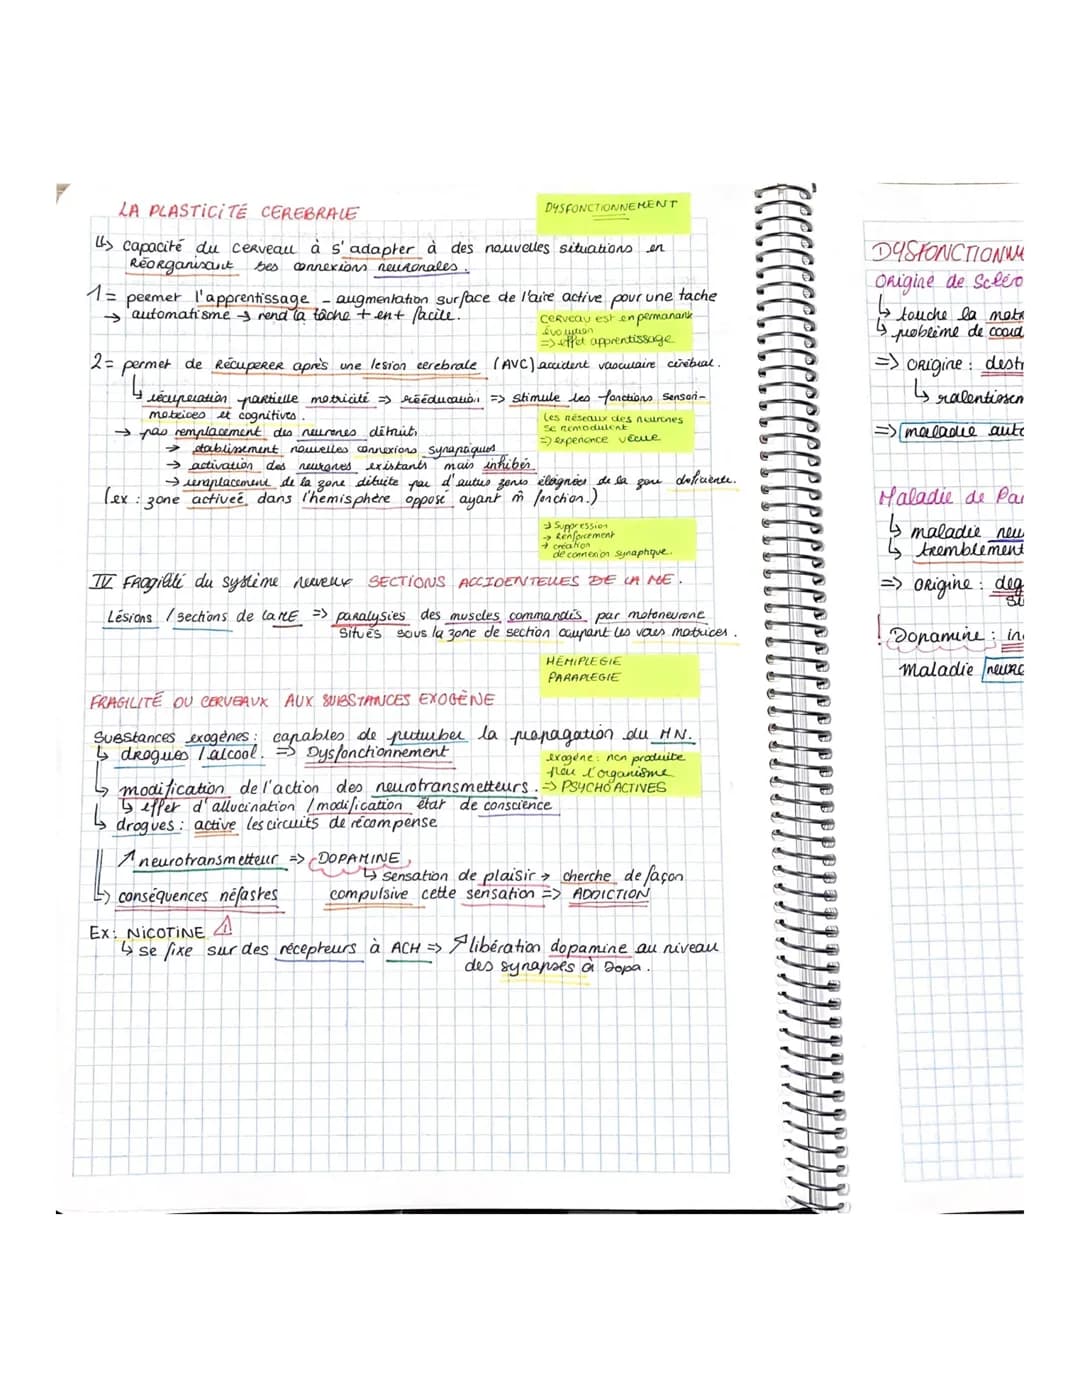 LA PLASTICITÉ CEREBRALE
DYSFONCTIONNEMENT
↳ capacité du cerveau à s'adapter à des nouvelles situations en
Réorganisant ses connexions neuronales.
1 = permet l'apprentissage - augmentation surface de l'aire active pour une tache
→ automatisme → rend la tâche + en + facile.
cerveau est en permanank
évolution
=> effet apprentissage
2 = permet de Récuperer après une lesion cerebrale (AVC) accident vasculaire cérébral.
↳ récupération partielle motricité => rééducation => stimule les fonctions Sensori-
motrices et cognitives.
Les réseaux des neurones
se remodulent
=> experience vécue
→ pas remplacement des neurones détruits
→ établissement nouvelles connexions synaptiques
→ activation des neurones existants mais inhibés
→ remplacement de la zone détruite par d'autres zones éloignées de la zone déficiente.
(ex : zone activeé dans l'hemisphère opposé ayant m̂ fonction.)
→ Suppression
→ Renforcement
→ création
de connexion synaphque.
IV Fragilité du système nerveux SECTIONS ACCIDENTELLES DE LA ME.
Lésions / sections de la ME => paralysies des muscles commandés par motoneurone
Situés sous la zone de section coupant les voies motrices.
HÉMIPLEGIE
PARAPLEGIE
FRAGILITÉ DU CERVEAUX AUX SUBSTANCES EXOGÈNE
Substances exogènes : capables de perturber la propagation du MN.
↳ drogues / alcool. => Dysfonctionnement
exogène : non produite
par l'organisme
=> PSYCHOACTIVES
↳ modification de l'action des neurotransmetteurs.
↳ effet d'allucination / modification état de conscience
↳ drogues : active les circuits de récompense
↗ neurotransmetteur => DOPAMINE
↳ sensation de plaisir → cherche de façon
↳ conséquences néfastes compulsive cette sensation => ADDICTION
Ex: NICOTINE ⚠
↳ se fixe sur des récepteurs à ACH => ↗ libération dopamine au niveau
des synapses à Dopa.
DYSFONCTIONN
Origine de Scléro
↳ touche la motr
↳ problème de coord
=> origine : destr
↳ ralentissem
=> maladie auto
Maladie de Par
↳ maladie neu
↳ tremblement
=> origine : deg
! Dopamine : in
Maladie neuro